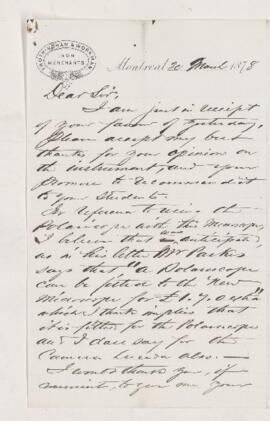 FROTHINGHAM & WORKMAN
IRON
MERCHANTS
Montreal 20 March 1878
Dear Sir,
I am just in receipt
of your favor of yesterday,
Please accept my best
thanks for your opinion on
the instrument, and your
promise to recommend it
to your Students.
In reference to using the
Polariscope with this Microscope,
I believe that was anticipated
as in his letter Mr Parkes
says that "a Polariscope
can be fitted to the New
Microscope for £1.7.0
which I think implies that
it is fitted for the Polariscope
and I dare say for the
Camera Lucida also. —
I would thank you, if
convenient, to give me your